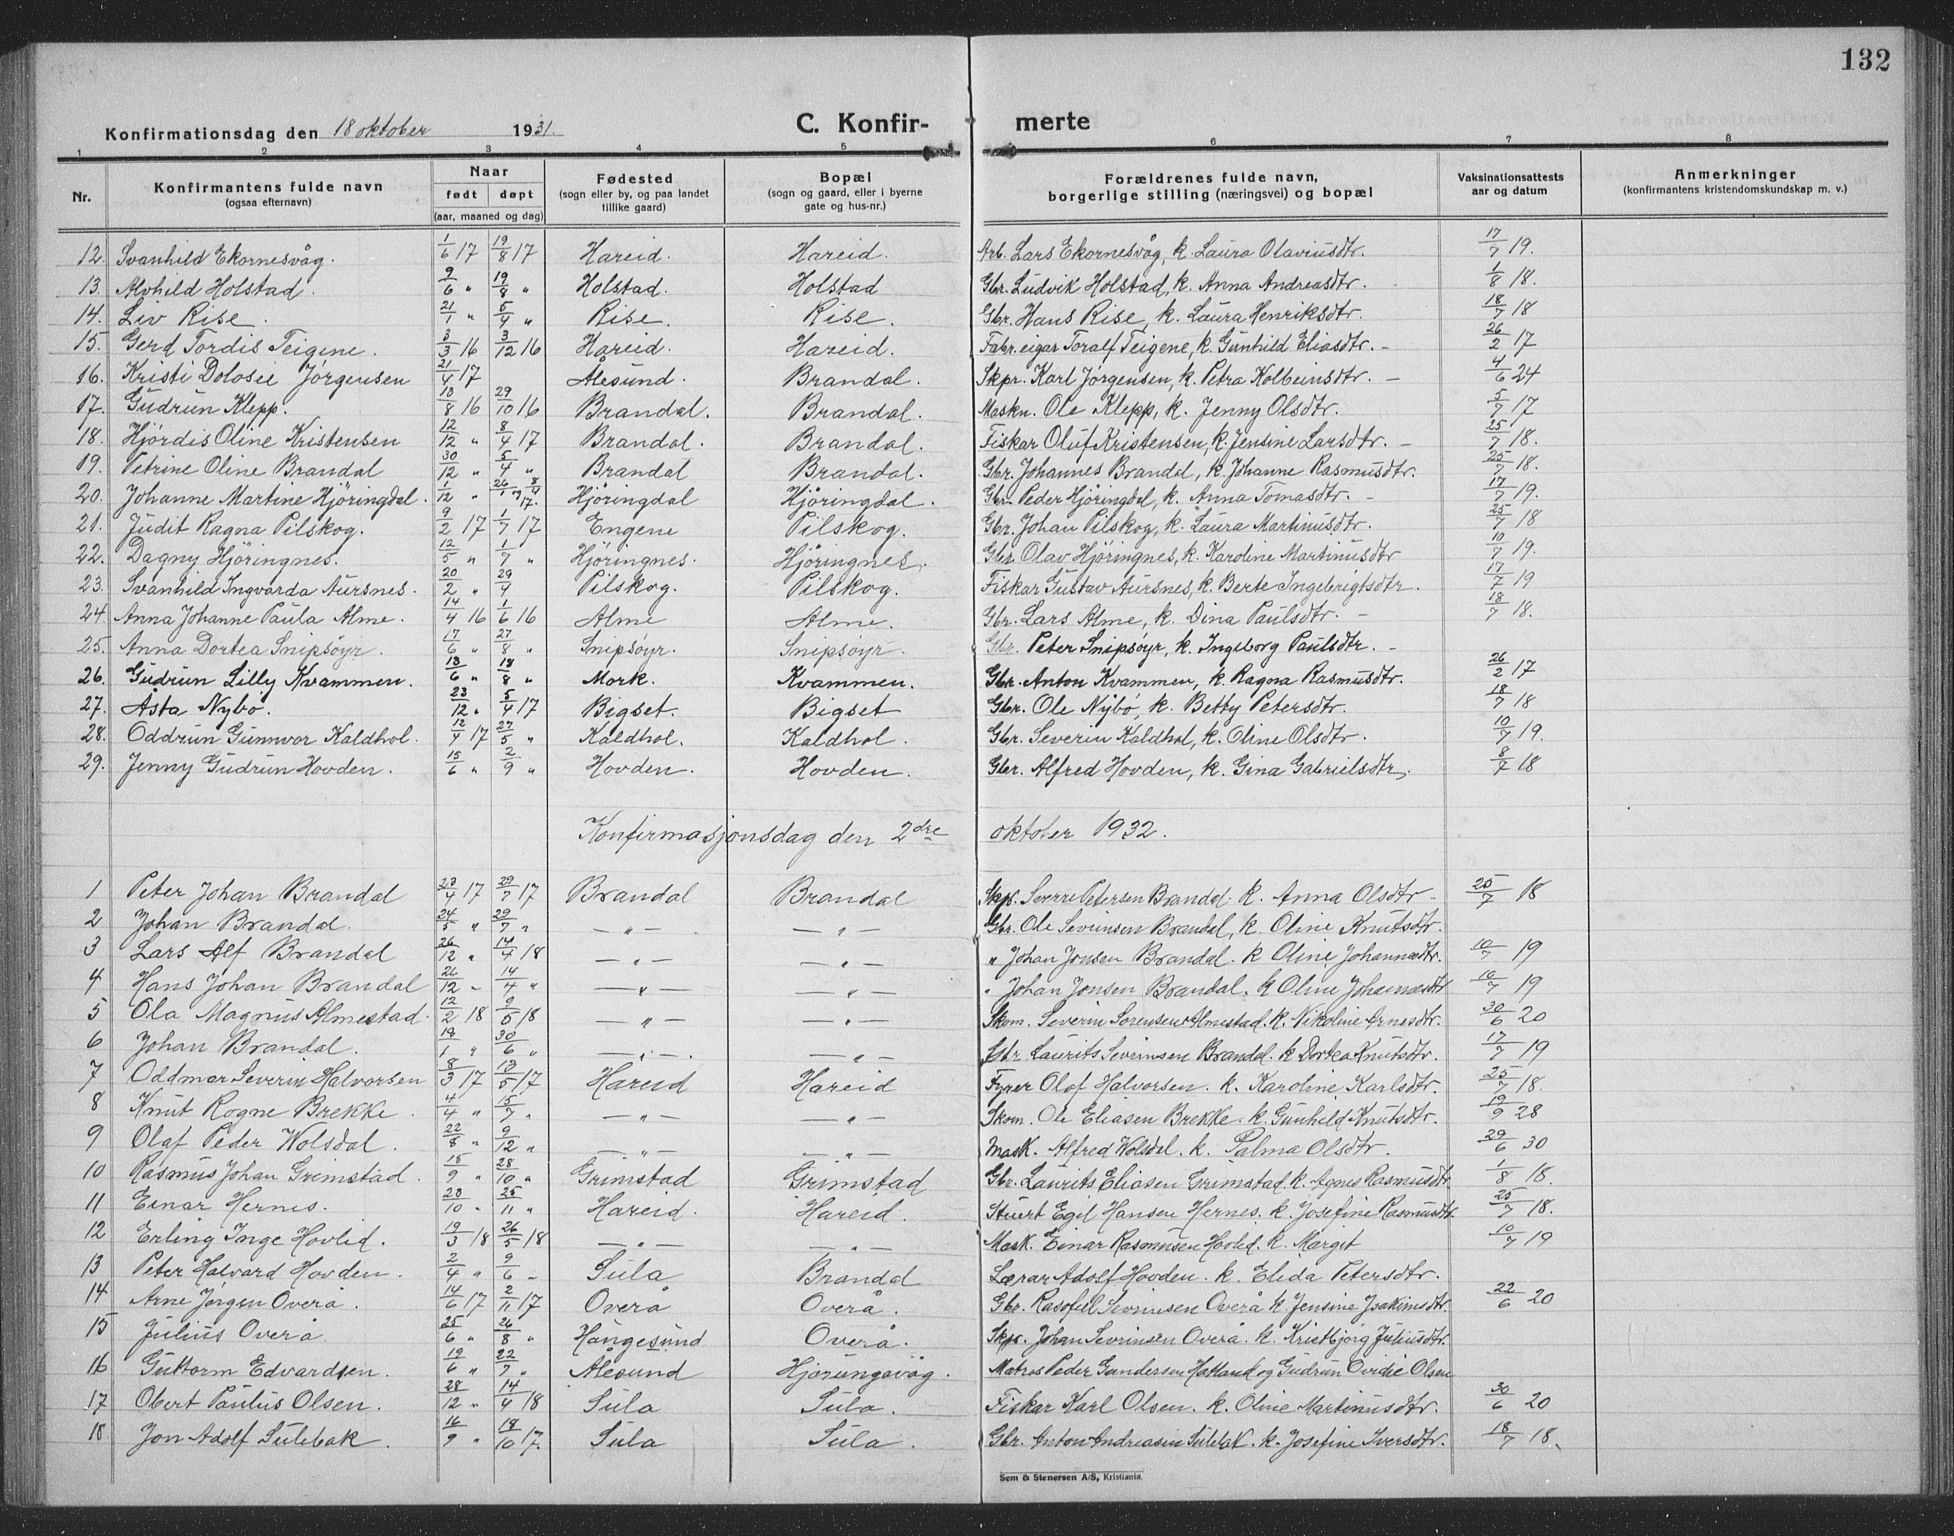 132
Konfirmationsdag den 18 oktober 1931. C. Konfir- merte
1 2 3 4 5 6 7 8
Nr. Konfirmantens fulde navn (ogsaa efternavn) Naar født døpt (aar, maaned og dag) Fødested (sogn eller by, og paa landet tillike gaard) Bopæl (sogn og gaard, eller i byerne gate og hus-nr.) Forældrenes fulde navn, borgerlige stilling (næringsvei) og bopæl Vaksinationsattests aar og datum Anmerkninger (konfirmantens kristendomskundskap m. v.)
12. Svanhild Ekornesvåg. 1/6 17 19/8 17 Hareid. Hareid. Arb. Lars Ekornesvåg, k. Laura Olaviusdtr. 17/7 19.
13. Alvhild Holstad. 9/6 " 19/8 " Holstad. Holstad Gbr. Ludvik Holstad, k. Anna Andreasdtr. 1/8 18.
14. Liv Rise. 21/1 " 5/4 " Rise. Rise. Gbr. Hans Rise, k. Laura Henriksdtr. 18/7 18
15. Gerd Tordis Teigene. 3/3 16 3/12 16 Hareid. Hareid. Fabr. eigar Toralf Teigene, k. Gunhild Eliasdtr. - 26/2 17
16. Kristi Dolosee Jørgensen 21/4 17 Ålesund. Brandal. Skpr. Karl Jørgensen, k. Petra Kolbeinsdtr. - 4/6 24
17. Gudrun Klepp. 10/8 16 29/10 16 Brandal. Brandal. Maskn. Ole Klepp, k. Jenny Olsdtr. 5/7 17
18. Hjördis Oline Kristensen 12/12 " 8/4 17 Brandal. Brandal. Fiskar Oluf Kristensen, k. Jensine Larsdtr. - 25/7 18.
19. Petrine Oline Brandal 30/12 " 5/4 " Brandal Brandal. Gbr. Johannes Brandal, k. Johanne Rasmusdtr. 25/7 18.
20. Johanne Martine Hjöringdal. 1/12 " 26/1 " 8/4 17. Hjöringdal Hjöringdal. Gbr. Peder Hjöringdal, k. Anna Tomasdtr. - 17/7 19.
21. Judit Ragna Pilskog. 9/2 17 1/7 17 Engene Pilskog. Gbr. Johan Pilskog, k. Laura Martinusdtr. 25/7 18
22. Dagny Hjöringnes. 12/5 " 1/7 " Hjöringnes. Hjöringnes. Gbr. Olav Hjöringnes, k. Karoline Martinusdtr 10/7 19.
23. Svanhild Ingvarda Aursnes. 20/2 " 29/4 Pilskog. Pilskog. Fiskar Gustav Aursnes, k. Berte Ingebrigtsdtr. 17/7 19
24. Anna Johanne Paula Alme. 14/4 16 1/6 16 Alme Alme. Gbr. Lars Alme, k. Dina Paulsdtr. - 18/7 18.
25. Anna Dortea Snipsöyr. 17/6 " 27/8 " Snipsöyr. Snipsöyr. Gbr. Peter Snipsöyr, k. Ingeborg Paulsdtr. -
26. Gudrun Lilly Kvammen. 13/6 " 18/8 " Mork. Kvammen. Gbr. Anton Kvammen, k. Ragna Rasmusdtr. 26/2 17
27. Asta Nybö. 23/12 " 5/4 17 Bigset. Bigset Gbr. Ole Nybö, k. Betty Petersdtr. 18/7 18
28. Oddrun Gunnvor Kaldhol. 12/4 17 27/5 " Kaldhol. Kaldhol. Gbr. Severin Kaldhol, k. Oline Olsdtr. 10/7 19.
29. Jenny Gudrun Hovden. 15/6 " 2/9 " Hovden. Hovden. Gbr. Alfred Hovden, k. Gina Gabrielsdtr. 8/7 18
Konfirmasjonsdag den 2dre oktober 1932.
1 Peter Johan Brandal 23/4 17 29/7 17 Brandal Brandal Skpr. Sverre Petersen Brandal. k. Anna Olsdtr - 25/7 18
2 Johan Brandal. 24/5 " 29/7 " — " — — " — Gbr. Ole Sevrinsen Brandal, k. Oline Knutsdtr.
3 Lars Alf Brandal 26/12 " 14/4 18 — " — — " — " Johan Jonsen Brandal. k Oline Johannesdtr. 10/7 19
4 Hans Johan Brandal 26/12 " 14/4 " — " — — " — " Johan Jonsen Brandal. k Oline Johannesdtr 10/7 19
5 Ola Magnus Almestad. 12/2 18 9/5 18 — " — — " — Skom. Severin Sorensen Almestad. k. Nikoline Arnesdtr. 30/6 20
6 Johan Brandal. 19/1 " 30/6 " — " — — " — Gbr. Laurits Sevrinsen Brandal. k Dortea Knutsdtr. 17/7 19
7 Oddmar Severin Halvorsen 8/3 17 13/5 17 Hareid Hareid Fyrer Olaf Halvorsen. k. Karoline Karlsdtr. 25/7 18.
8 Knut Rogne Brekke. 4/4 " 15/7 " — " — — " — Skom. Ole Eliasen Brekke. k. Gunhild Knutsdtr. 19/9 28
9 Olaf Peder Wolsdal. 22/8 " 9/12 " — " — — " — Mask. Alfred Wolsdal. k. Palma Olsdtr. 29/6 30
10 Rasmus Johan Grimstad. 15/9 " 28/10 " Grimstad Grimstad Gbr. Laurits Eliasen Grimstad k. Agnes Rasmusdtr. 1/8 18.
11 Einar Hernes. 23/10 " 25/11 " Hareid. Hareid. Stuert Egil Hansen Hernes. k. Josefine Rasmusdtr. 25/7 18.
12 Erling Inge Hovlid. 19/3 18 26/5 18 — " — — " — Mask. Einar Rasmusen Hovlid. k. Marget 10/7 19
13 Peter Halvard Hovden. 2/4 " 9/6 " Sula Brandal Lærar Adolf Hovden. k. Elida Petersdtr.
14 Arne Jørgen Overå. 14/6 17 2/11 17 Overå Overå. Gbr. Sevrinsen Overå k. Jensine Joakimsdtr. 22/6 20
15 Julius Overå 25/6 " 26/8 " Haugesund Overå. Skpr. Johan Sevrinsen Overå. k. Kristbjörg Juliusdtr.
16 Guttorm Edvardsen. 19/6 " 22/7 " Ålesund Hjørungavåg. Matros Peder Gundersen Hatland og Gudrun Ovidie Olsen
17 Obert Paulus Olsen. 28/12 " 14/4 18 Sula Sula. Fiskar Karl Olsen. k. Oline Martinusdtr. 30/6 20
18 Jon Adolf Sulebak. 16/9 " 19/10 17. Sula Sula. Gbr. Anton Andreasen Sulebak. k. Josefine Iversdtr. 18/7 18.
Sem & Stenersen A/S, Kristiania.